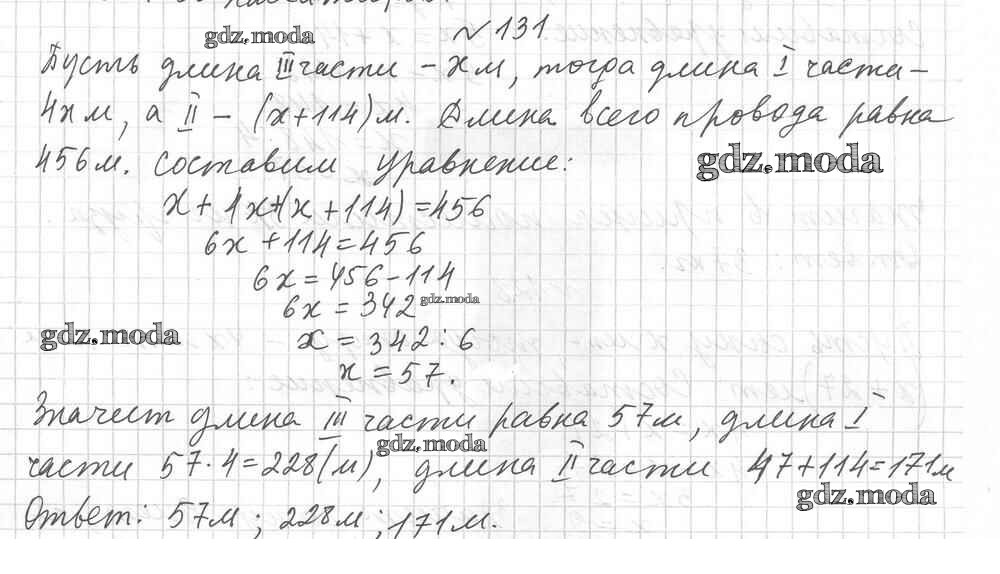 №131
gdz.moda
Пусть длина III части – x м, тогда длина I части –
4x м, а II – (x+114) м. Длина всего провода равна
456 м. составим уравнение:
gdz.moda
x + 4x+(x+114)=456
6x+114=456
6x=456-114
6x=342
gdz.moda
gdz.moda
x=342:6
x=57.
Значит длина III части равна 57м, длина I
gdz.moda
части 57·4=228(м), длина II части 47+114=171м
gdz.moda
Ответ: 57м; 228м; 171м.